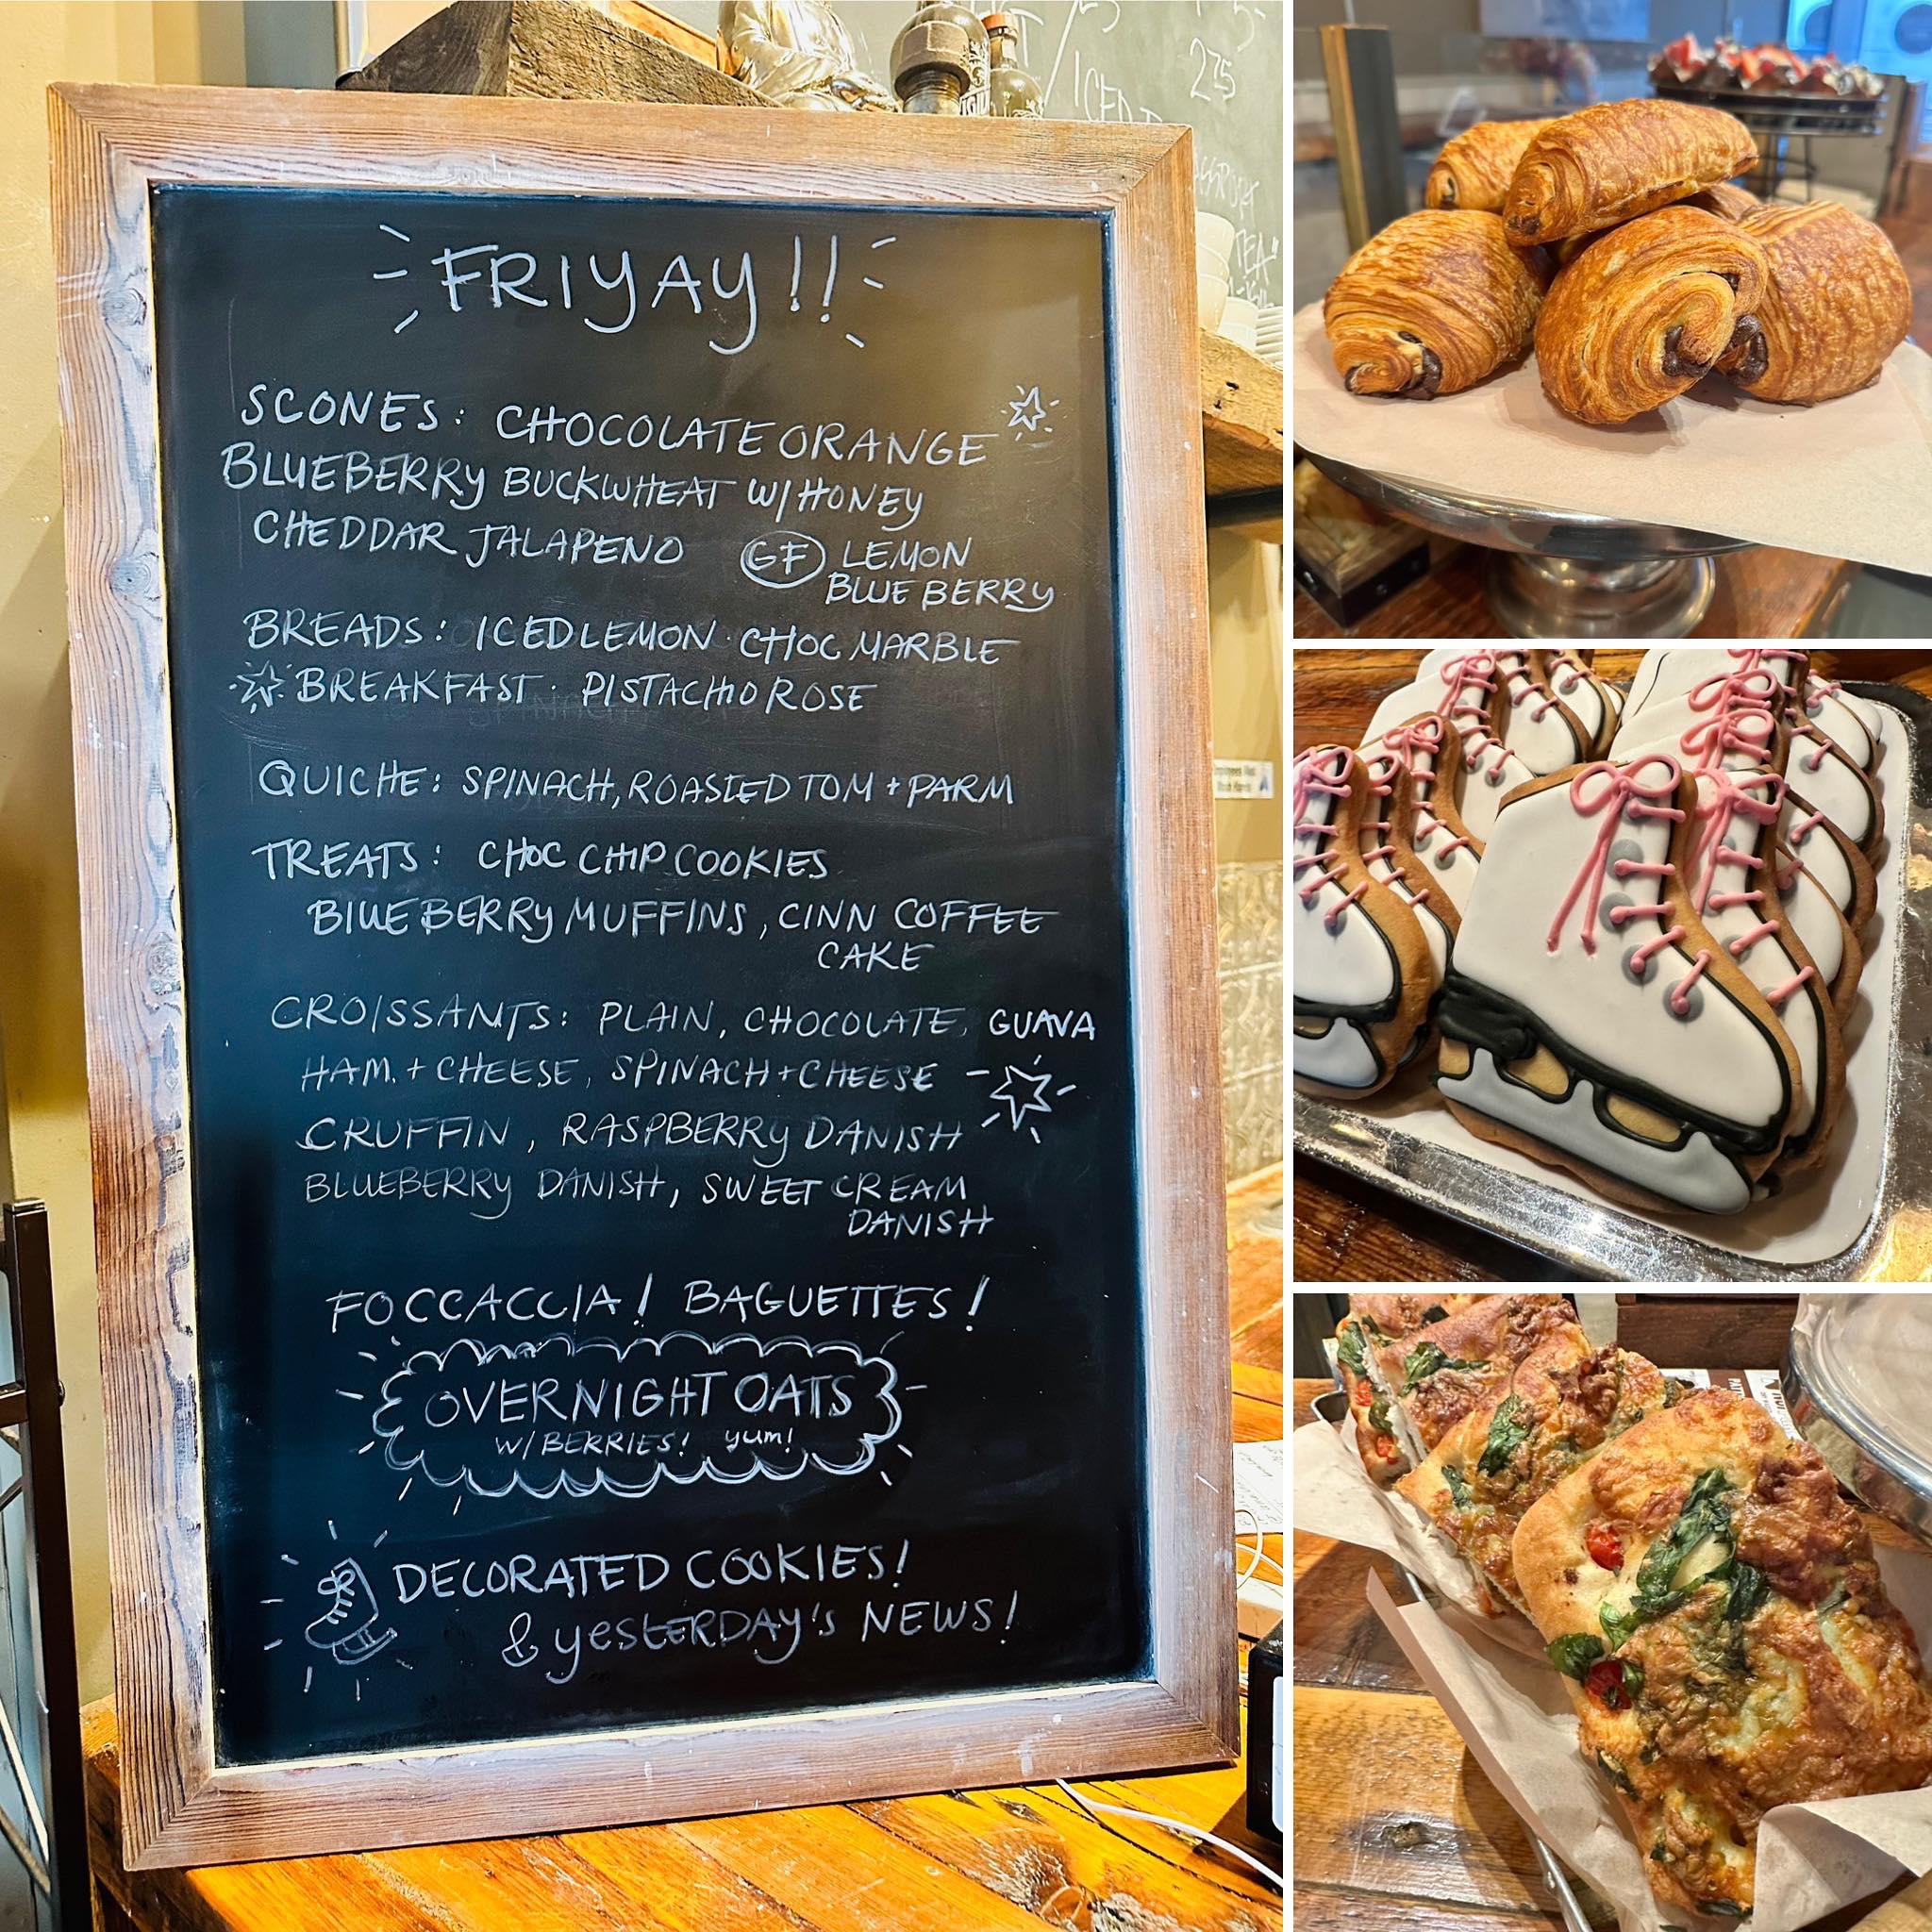 FRIYAY!!
SCONES: CHOCOLATE ORANGE
BLUEBERRY BUCKWHEAT W/HONEY
CHEDDAR JALAPENO GF LEMON
BLUEBERRY
BREADS: ICED LEMON · CHOC MARBLE
BREAKFAST · PISTACHIO ROSE
QUICHE: SPINACH, ROASTED TOM + PARM
TREATS: CHOC CHIP COOKIES
BLUEBERRY MUFFINS, CINN COFFEE
CAKE
CROISSANTS: PLAIN, CHOCOLATE, GUAVA
HAM. + CHEESE, SPINACH + CHEESE
CRUFFIN, RASPBERRY DANISH
BLUEBERRY DANISH, SWEET CREAM
DANISH
FOCCACCIA! BAGUETTES!
OVERNIGHT OATS
W/BERRIES! yum!
DECORATED COOKIES!
& yesterday's NEWS!
275
ICED T
TEA